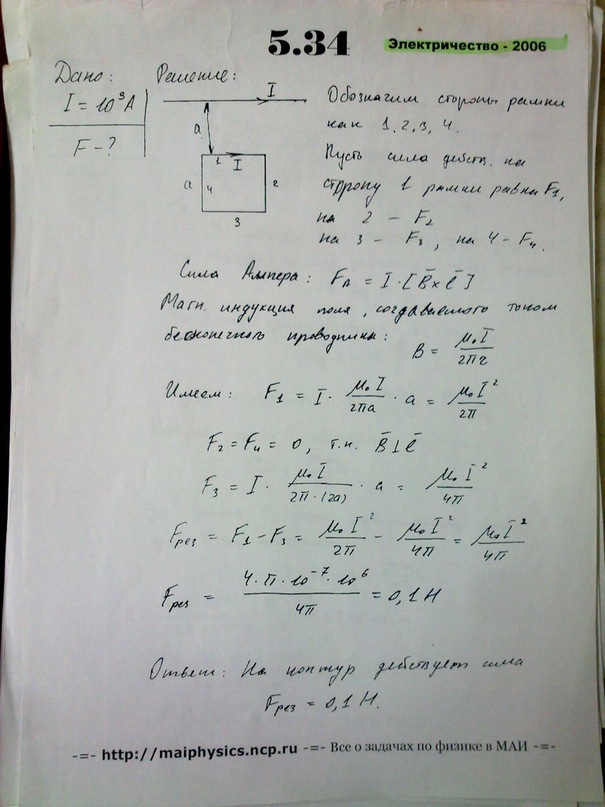 5.34
Электричество - 2006
Дано:
Решение:
I = 10³A
F - ?
I
a
1 I
a 4 2
3
Обозначим стороны рамки
как 1, 2, 3, 4.
Пусть сила действ. на
сторону 1 рамки равна F₁,
на 2 - F₂
на 3 - F₃, на 4 - F₄.
Сила Ампера: F_A = I · [B̄ × ℓ̄]
Магн. индукция поля, создаваемого током
бесконечного проводника: B = μ₀I / 2πr
Имеем: F₁ = I · μ₀I / 2πa · a = μ₀I² / 2π
F₂ = F₄ = 0, т.к. B̄ ⊥ ℓ̄
F₃ = I · μ₀I / 2π·(2a) · a = μ₀I² / 4π
Fрез = F₁ - F₃ = μ₀I² / 2π - μ₀I² / 4π = μ₀I² / 4π
Fрез = 4·π·10⁻⁷·10⁶ / 4π = 0,1 Н
Ответ: На контур действует сила
Fрез = 0,1 Н.
-=- http://maiphysics.ncp.ru -=- Все о задачах по физике в МАИ -=-